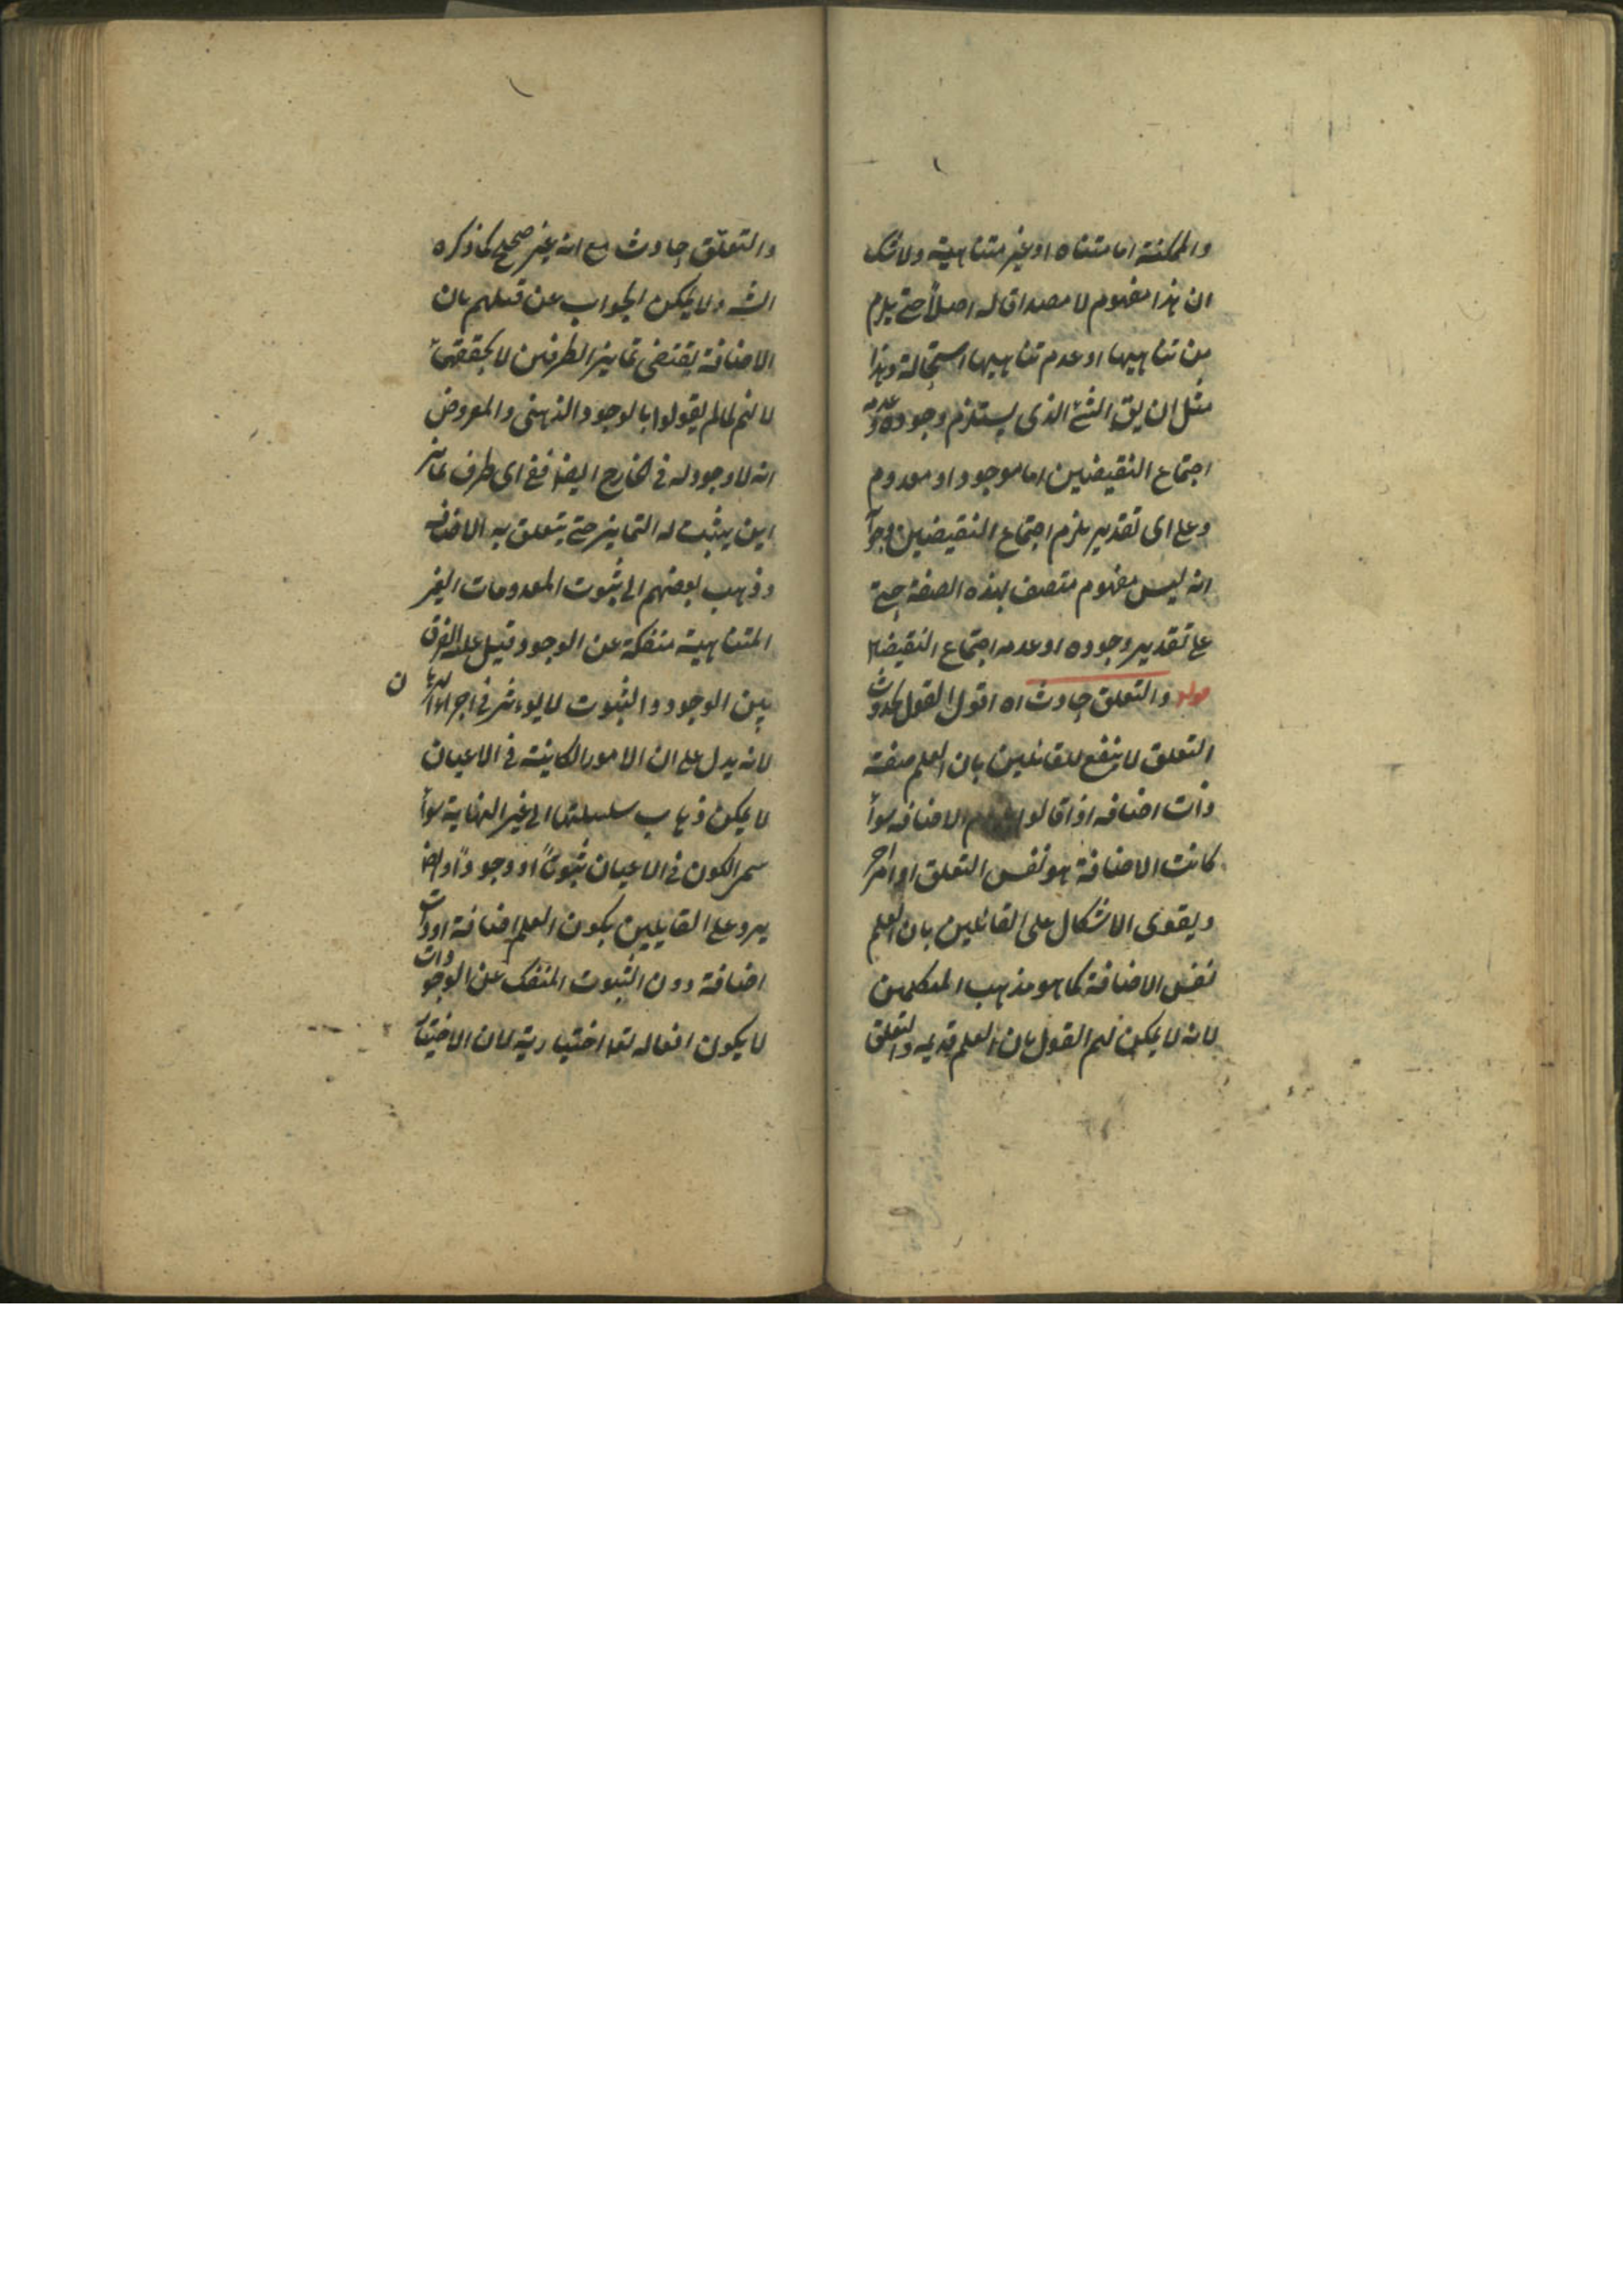 والممكنة اما متناه او غير متناهية ولا شك
ان هذا مفهوم لا مصداق له اصلاً حتى يلزم
من تناهيها او عدم تناهيها استحالة وهذا
مثل ان يق الشئ الذى يستلزم وجوده وعدمه
اجتماع النقيضين اما موجود او معدوم
وعلى اى تقدير يلزم اجتماع النقيضين
انه ليس مفهوم متصف بهذه الصفة حتى
على تقدير وجوده او عدمه اجتماع النقيضا
قوله والتعلق حادث اه اقول القول بحدوث
التعلق لا ينفع للقائلين بان العلم صفة
ذات اضافه اذا قالوا الاضافه سوأ
كانت الاضافة هو نفس التعلق او امرا
ويقوى الاشكال على القائلين بان العلم
نفس الاضافة كما هو مذهب المتكلمين
لانه لا يمكن لهم القول بان العلم قديمه والتعلق
والتعلق حادث مع انه غير صحيح كما ذكره
الشه ولا يمكن الجواب عن قبلهم بان
الاضافة يقتضى تمايز الطرفين لا تحققهما
لانهم لما لم يقولوا بالوجود الذهنى والمعروض
انه لا وجود له فى الخارج ايضا ففى اى طرف تمايز
اين يثبت له التمايز حتى يتعلق به الاضافه
وذهب بعضهم الى ثبوت المعدومات الغير
المتناهية منفكة عن الوجود وقيل عليه الفرق
بين الوجود والثبوت لا يوءثر فى اجراء
لانه يدل على ان الامور الكاينة فى الاعيان
لا يمكن ذهاب سلسلتها الى غير النهاية سوأ
سمى الكون فى الاعيان ثبوتاً او وجوداً وايضا
يرد على القايلين بكون العلم اضافة او ذات
اضافة دون الثبوت المنفك عن الوجود وان
لا يكون افعاله تعا اختيارية لان الاختيار